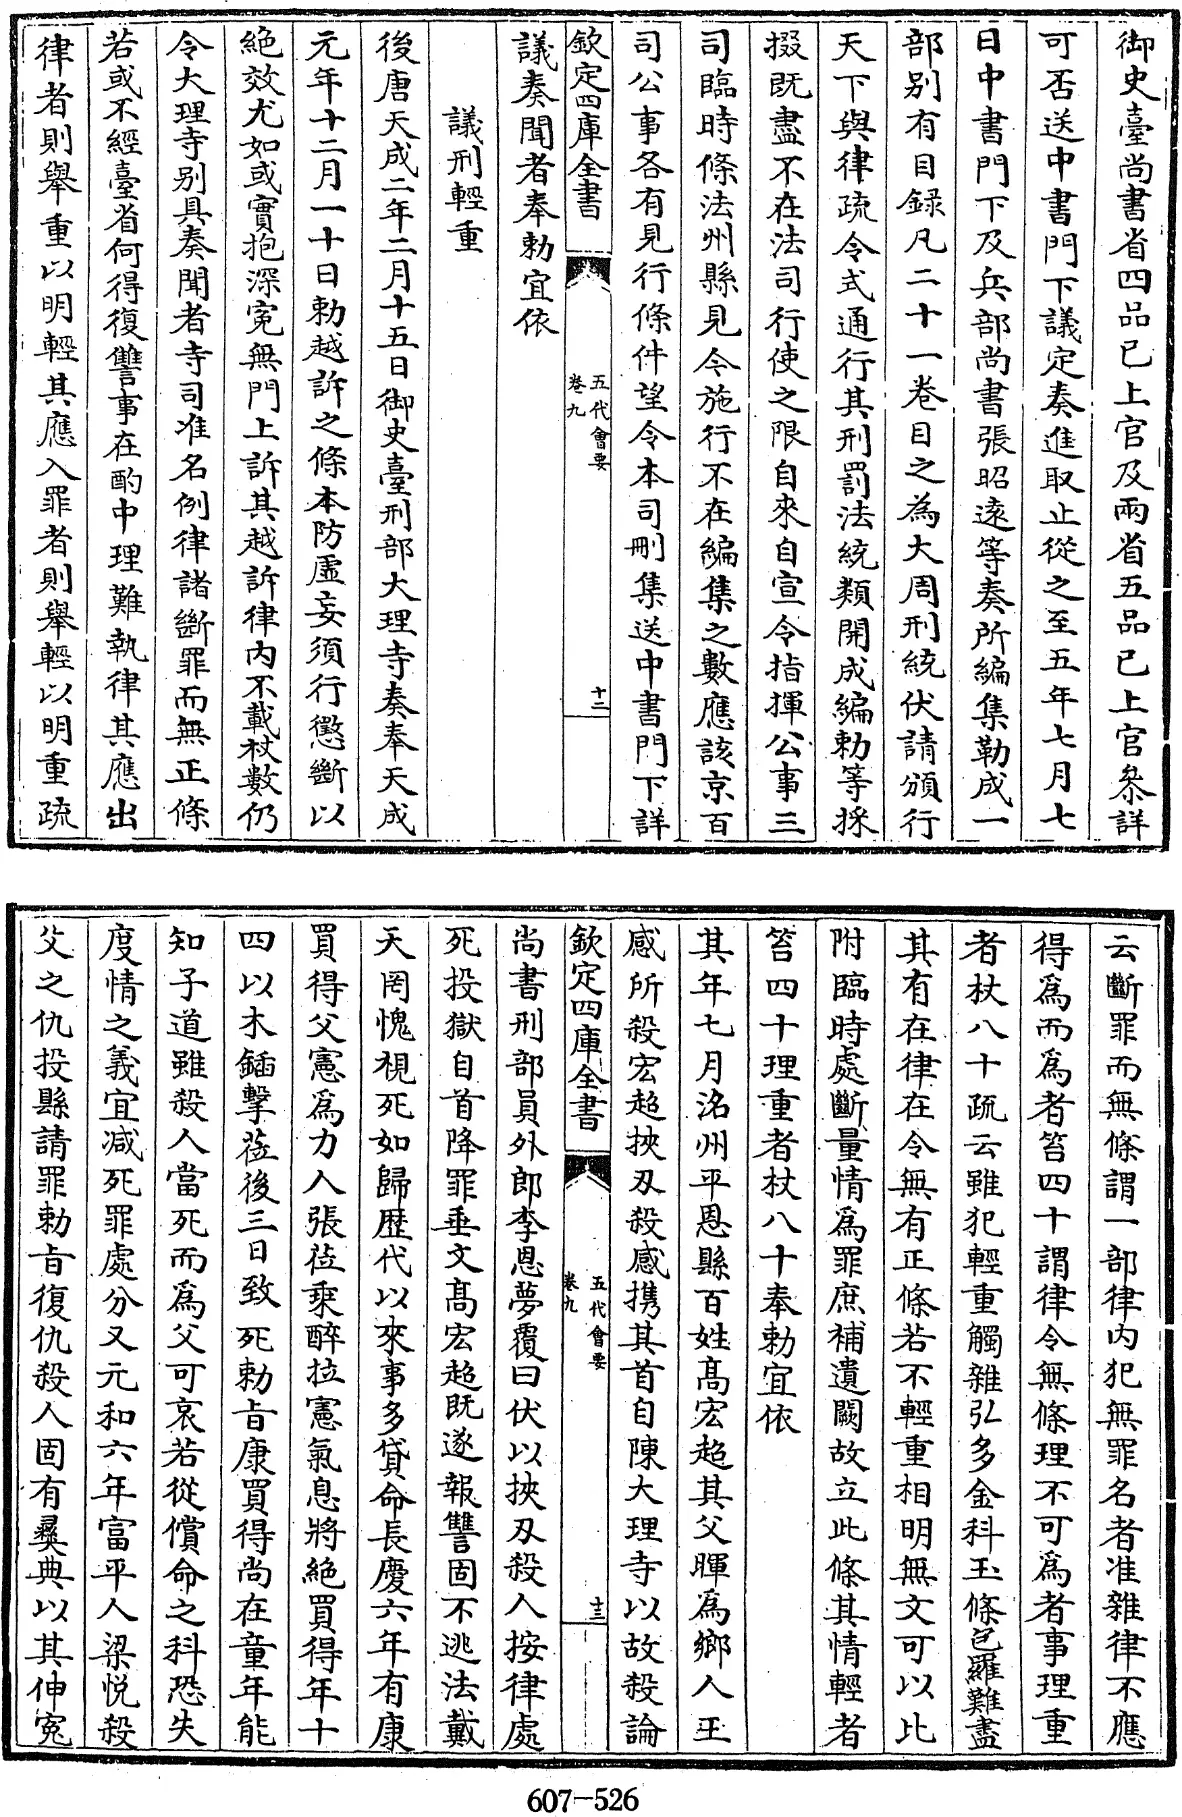 御史臺尚書省四品已上官及兩省五品已上官叅詳
可否送中書門下議定奏進取止從之至五年七月七
日中書門下及兵部尚書張昭遠等奏所編集勒成一
部别有目録凡二十一卷目之為大周刑統伏請頒行
天下與律疏令式通行其刑罰法統類開成編勅等採
掇既盡不在法司行使之限自來自宣令指揮公事三
司臨時條法州縣見今施行不在編集之數應該京百
司公事各有見行條件望令本司刪集送中書門下詳
欽定四庫全書
五代會要
卷九
十二
議奏聞者奉勅宜依
議刑輕重
後唐天成二年二月十五日御史臺刑部大理寺奏奉天成
元年十二月一十日勅越訴之條本防虛妄須行懲斷以
絶效尤如或實抱深寃無門上訴其越訴律内不載杖數仍
令大理寺别具奏聞者寺司准名例律諸斷罪而無正條
若或不經臺省何得復讐事在酌中理難執律其應出
律者則舉重以明輕其應入罪者則舉輕以明重疏
云斷罪而無條謂一部律内犯無罪名者准雜律不應
得爲而爲者笞四十謂律令無條理不可爲者事理重
者杖八十疏云雖犯輕重觸雜弘多金科玉條包羅難盡
其有在律在令無有正條若不輕重相明無文可以比
附臨時處斷量情爲罪庶補遺闕故立此條其情輕者
笞四十理重者杖八十奉勅宜依
其年七月洺州平恩縣百姓高宏超其父暉爲鄉人王
感所殺宏超挾刃殺感携其首自陳大理寺以故殺論
欽定四庫全書
五代會要
卷九
十三
尚書刑部員外郎李恩夢覆曰伏以挾刃殺人按律處
死投獄自首降罪垂文高宏超既遂報讐固不逃法戴
天罔愧視死如歸歴代以來事多貸命長慶六年有康
買得父憲爲力人張莅乘醉拉憲氣息將絶買得年十
四以木鍤擊莅後三日致死勅旨康買得尚在童年能
知子道雖殺人當死而爲父可哀若從償命之科恐失
度情之義宜减死罪處分又元和六年富平人梁悦殺
父之仇投縣請罪勅旨復仇殺人固有彞典以其伸寃
607-526